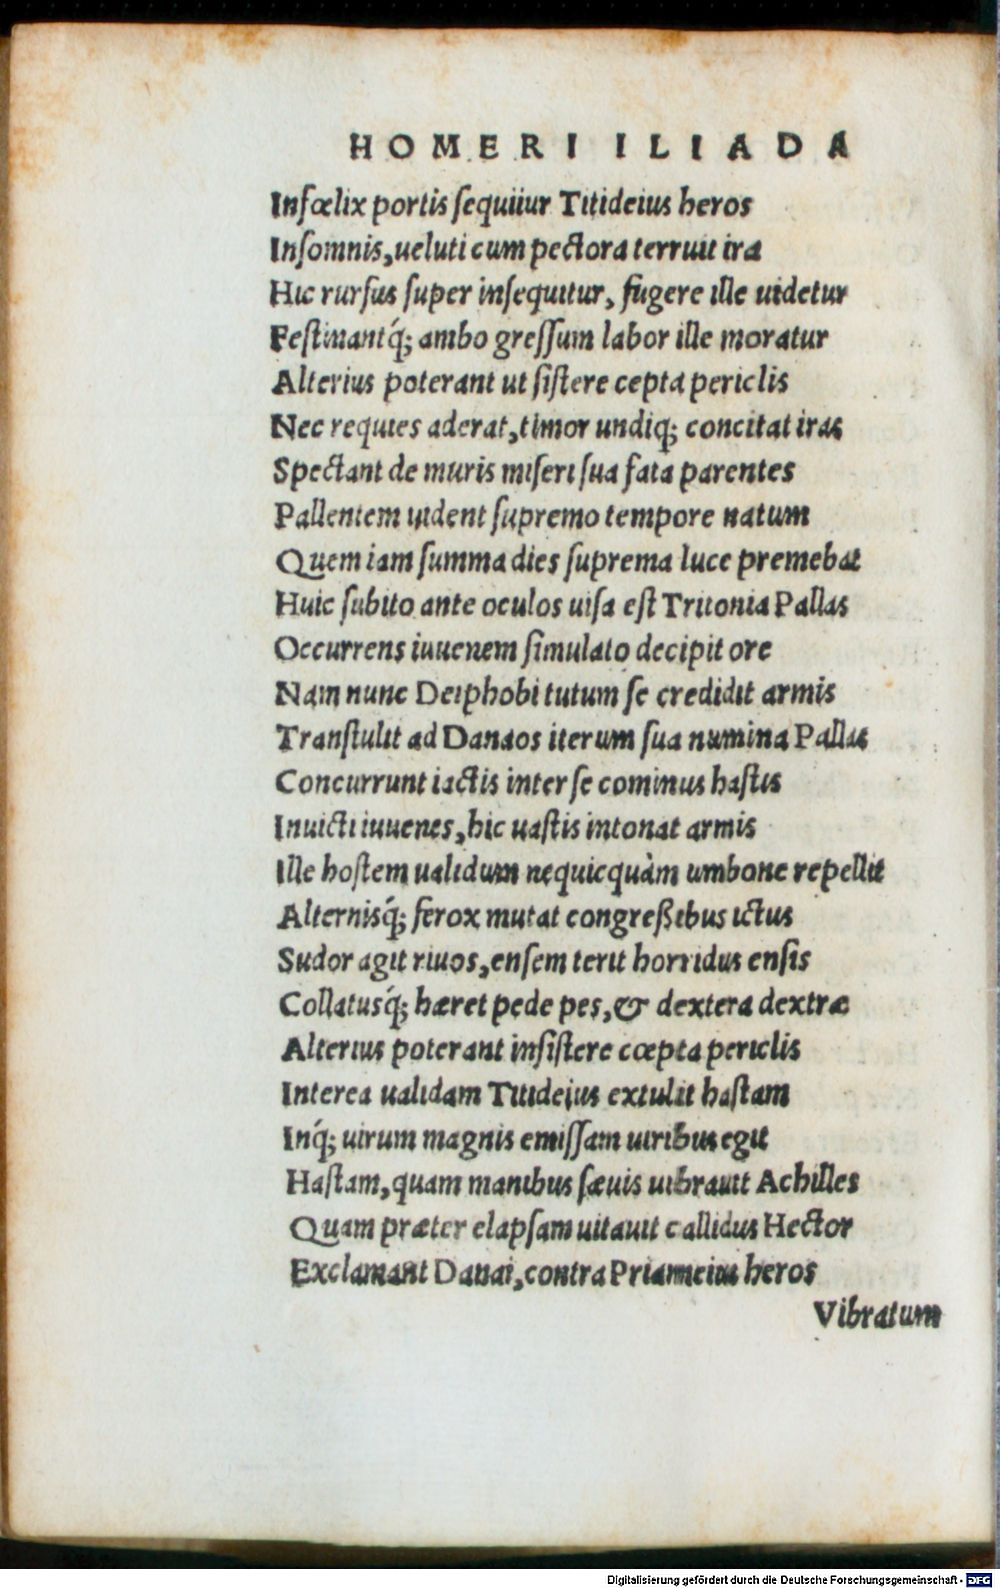 HOMERI ILIADA
Infœlix portis ſequiiur Titideius heros
Inſomnis, ueluti cum pectora terruit ira
Hic rurſus ſuper inſequitur, fugere ille uidetur
Feſtinantq́; ambo greſſum labor ille moratur
Alterius poterant ut ſiſtere cepta periclis
Nec requies aderat, timor undiq; concitat iras
Spectant de muris miſeri ſua fata parentes
Pallentem uident ſupremo tempore natum
Quem iam ſumma dies ſuprema luce premebat
Huic ſubito ante oculos uiſa eſt Tritonia Pallas
Occurrens iuuenem ſimulato decipit ore
Nam nunc Deiphobi tutum ſe credidit armis
Tranſtulit ad Danaos iterum ſua numina Pallas
Concurrunt iactis inter ſe cominus haſtis
Inuicti iuuenes, hic uaſtis intonat armis
Ille hoſtem ualidum nequicquàm umbone repellit
Alternisq́; ferox mutat congreßibus ictus
Sudor agit riuos, enſem terit horridus enſis
Collatusq́; hæret pede pes, & dextera dextræ
Alterius poterant inſiſtere cœpta periclis
Interea ualidam Titideius extulit haſtam
Inq́; uirum magnis emiſſam uiribus egit
Haſtam, quam manibus ſæuis uibrauit Achilles
Quam præter elapſam uitauit callidus Hector
Exclamant Danai, contra Priameius heros
Vibratum
Digitalisierung gefördert durch die Deutsche Forschungsgemeinschaft - DFG